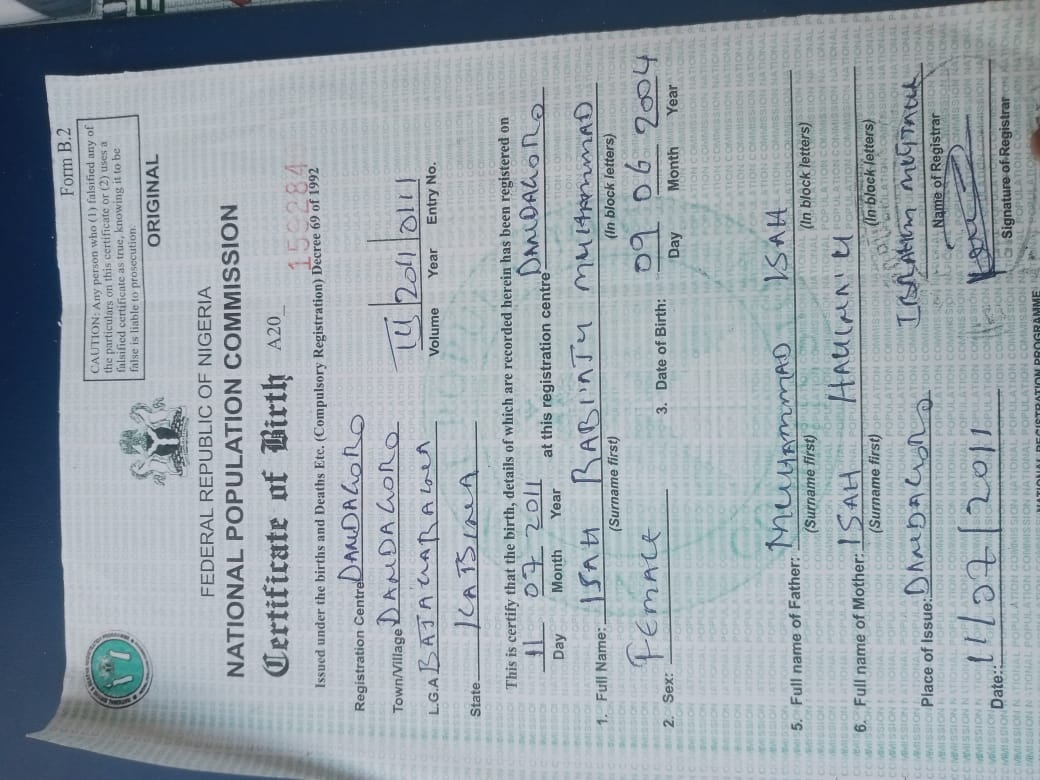 Form B.2
CAUTION: Any person who (1) falsified any of
the particulars on this certificate or (2) uses a
falsified certificate as true, knowing it to be
false is liable to prosecution.
ORIGINAL
FEDERAL REPUBLIC OF NIGERIA
NATIONAL POPULATION COMMISSION
Certificate of Birth A20_
159284
Issued under the births and Deaths Etc. (Compulsory Registration) Decree 69 of 1992
Registration Centre DANDAGORO
Town/Village DANDAGORO
2011 0111
Volume Year Entry No.
L.G.A BATAGARAWA
State KATSINA
This is certify that the birth, details of which are recorded herein has been registered on
11 07 2011 at this registration centre DANDAGORO
Day Month Year
1. Full Name: ISAH RABI'ATU MUHAMMAD
(Surname first) (In block letters)
2. Sex: FEMALE 3. Date of Birth: 09 06 2004
Day Month Year
5. Full name of Father: MUHAMMAD ISAH
(Surname first) (In block letters)
6. Full name of Mother: ISAH
(Surname first) (In block letters)
Place of Issue: DANDAGORO
Name of Registrar
Date: 11/07/2011
Signature of Registrar
NATIONAL REGISTRATION PROGRAMME